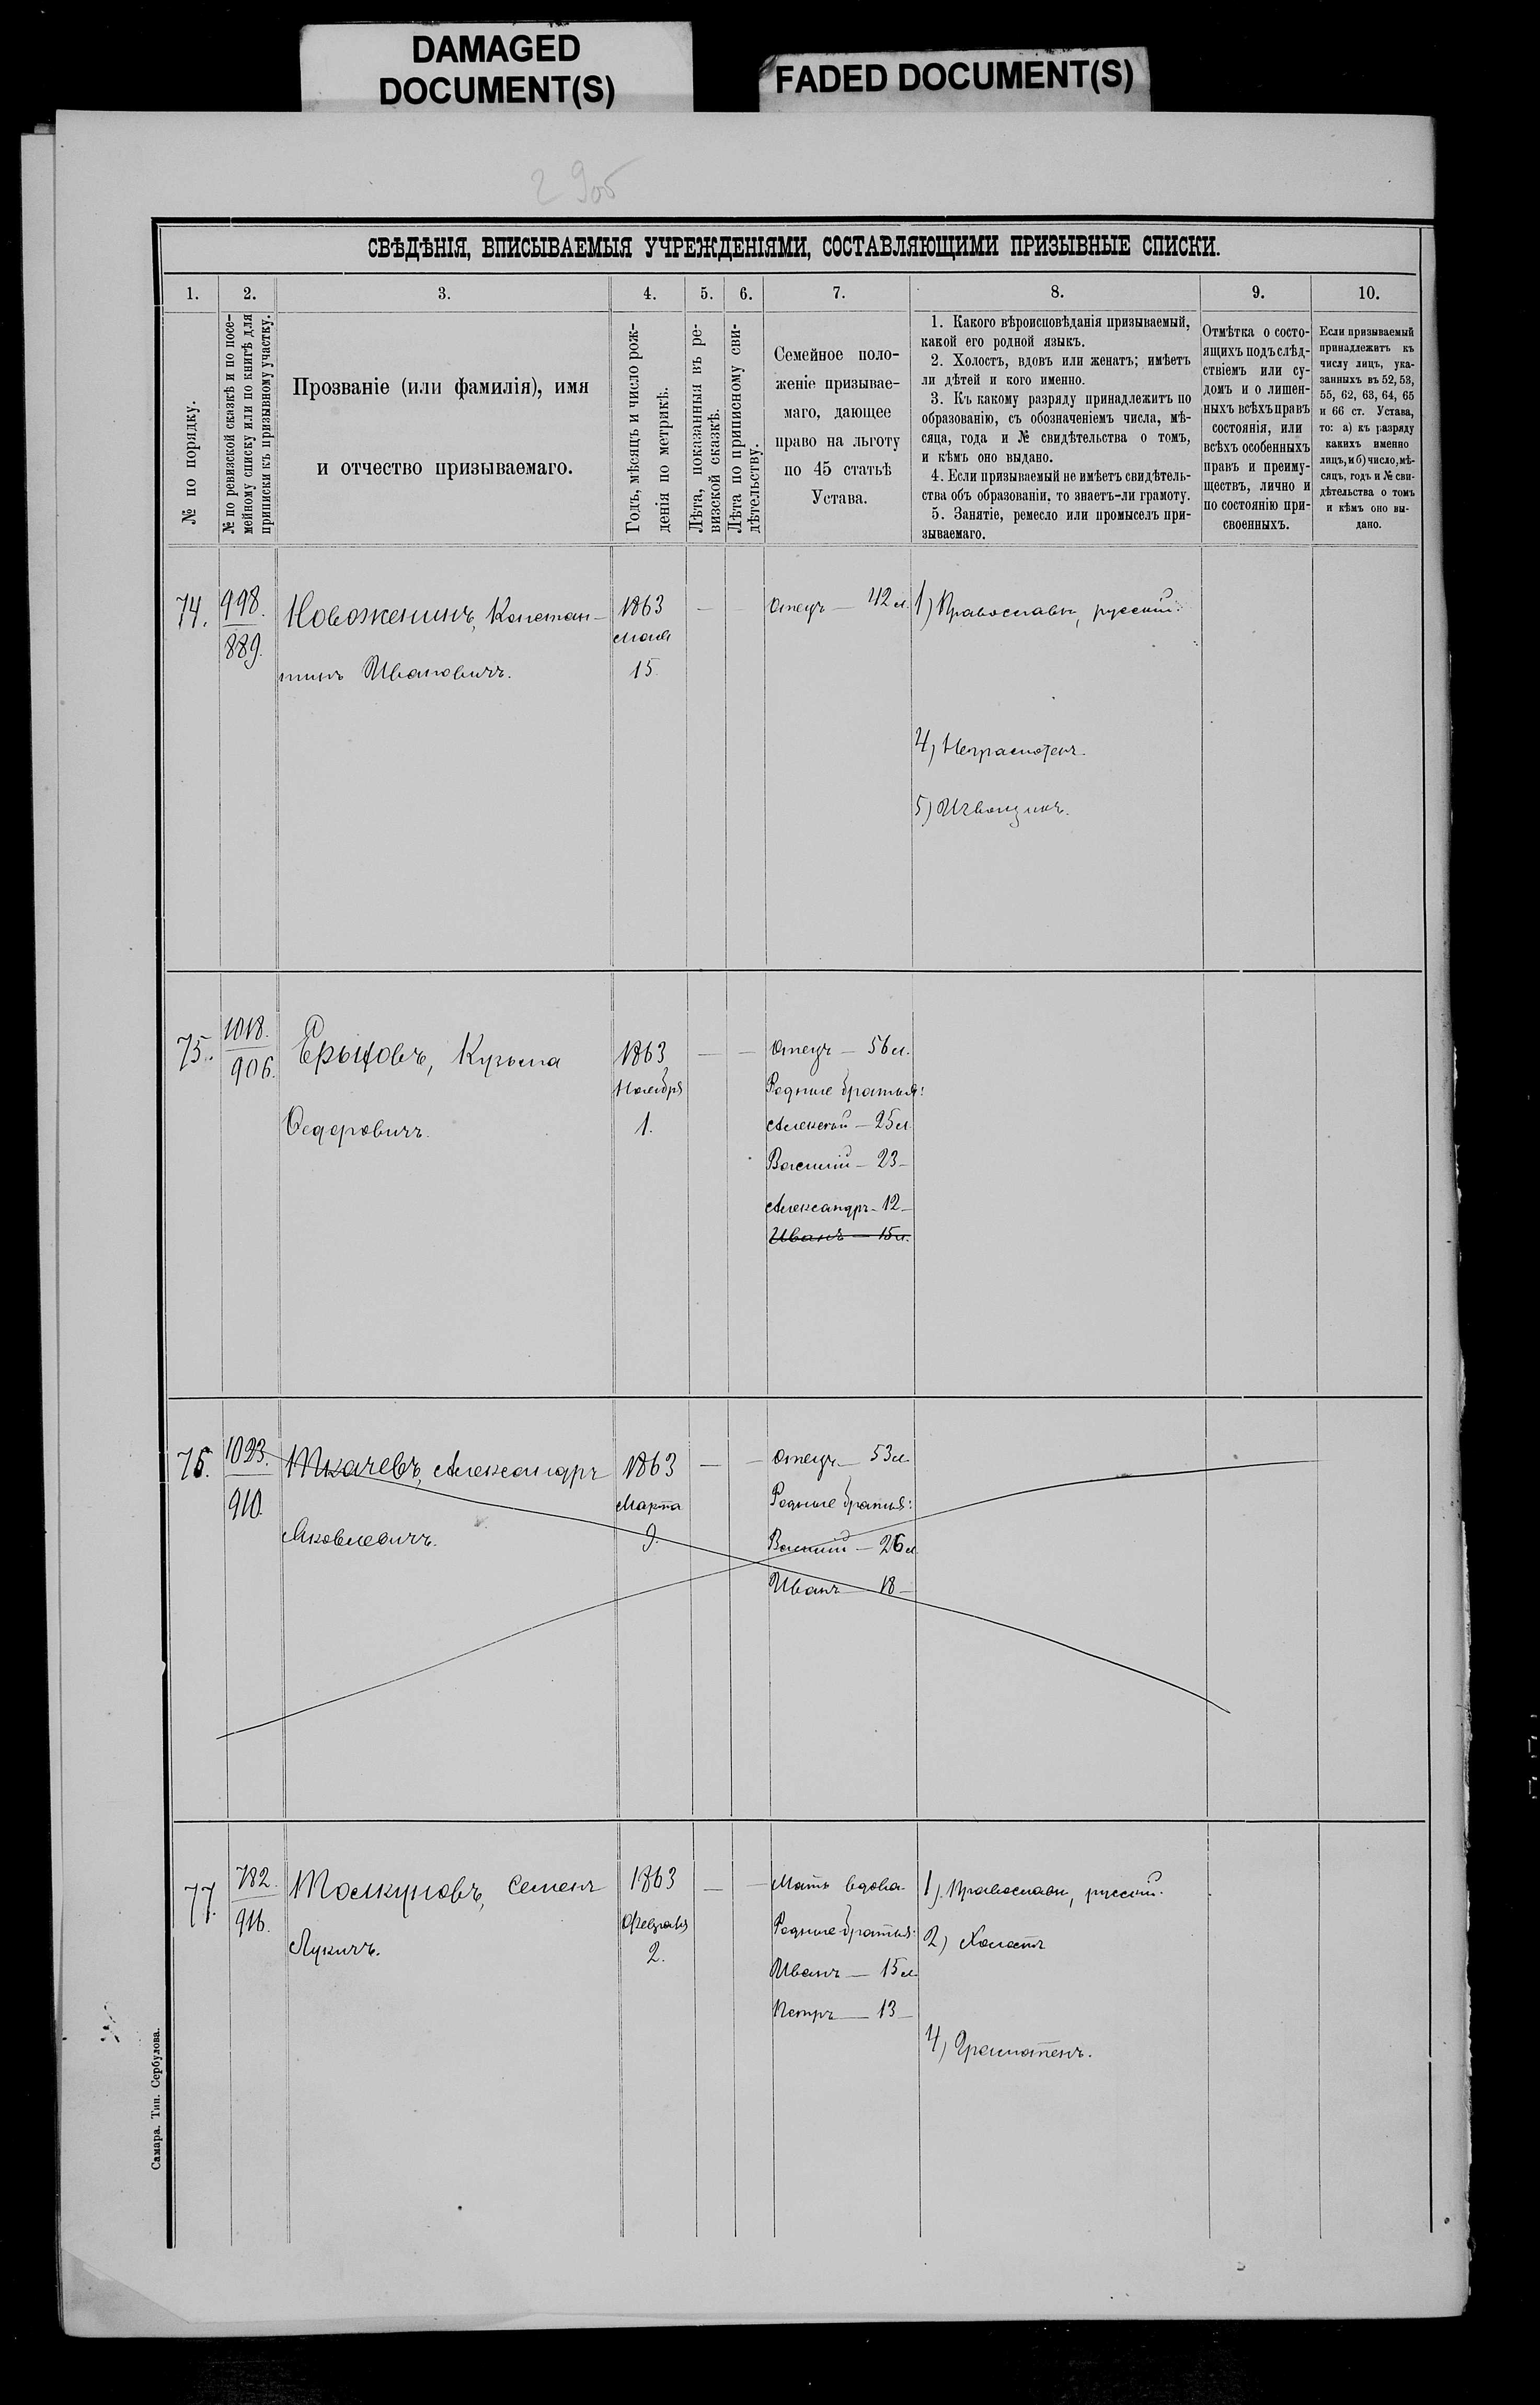 DAMAGED
DOCUMENT(S)
FADED DOCUMENT(S)
СВѢДѢНІЯ, ВПИСЫВАЕМЫЯ УЧРЕЖДЕНІЯМИ, СОСТАВЛЯЮЩИМИ ПРИЗЫВНЫЕ СПИСКИ.
1.
2.
3.
4.
5.
6.
7.
8.
9.
10.
№ по порядку.
№ по ревизской сказкѣ и по посе-
мейному списку или по книгѣ для
приписки къ призывному участку.
Прозваніе (или фамилія), имя
и отчество призываемаго.
Годъ, мѣсяцъ и число рож-
денія по метрикѣ.
Лѣта, показанныя въ ре-
визской сказкѣ.
Лѣта по приписному сви-
дѣтельству.
Семейное поло-
женіе призывае-
маго, дающее
право на льготу
по 45 статьѣ
Устава.
1. Какого вѣроисповѣданія призываемый,
какой его родной языкъ.
2. Холостъ, вдовъ или женатъ; имѣетъ
ли дѣтей и кого именно.
3. Къ какому разряду принадлежитъ по
образованію, съ обозначеніемъ числа, мѣ-
сяца, года и № свидѣтельства о томъ,
и кѣмъ оно выдано.
4. Если призываемый не имѣетъ свидѣтель-
ства объ образованіи, то знаетъ-ли грамоту.
5. Занятіе, ремесло или промыселъ при-
зываемаго.
Отмѣтка о состо-
ящихъ подъ слѣд-
ствіемъ или су-
домъ и о лишен-
ныхъ всѣхъ правъ
состоянія, или
всѣхъ особенныхъ
правъ и преиму-
ществъ, лично и
по состоянію при-
своенныхъ.
Если призываемый
принадлежитъ къ
числу лицъ, ука-
занныхъ въ 52, 53,
55, 62, 63, 64, 65
и 66 ст. Устава,
то: а) къ разряду
какихъ именно
лицъ, и б) число, мѣ-
сяцъ, годъ и № сви-
дѣтельства о томъ
и кѣмъ оно вы-
дано.
74.
998.
889.
Новоженинъ, Констан-
тинъ Ивановичъ.
1863
Мая
15.
—
—
Отецъ — 42 л.
1) Православн, русскій.
4) Неграмотенъ.
5) Извощикъ.
75.
1018.
906.
Кузьма
Ѳедоровичъ.
1863
Ноября
1.
—
—
Отецъ — 56 л.
Родные братья:
Алексѣй — 25 л.
Василий — 23 —
Александръ — 12 —
Иванъ — 15 л.
76.
1023.
910.
Ткачевъ, Александръ
Яковлевичъ.
1863
Марта
9.
—
—
Отецъ — 53 л.
Родные братья:
Василий — 26 л.
Иванъ — 18 —
77.
782.
916.
Толкуновъ, Семенъ
Лукичъ.
1863
Февраля
2.
—
—
Мать вдова.
Родные братья:
Иванъ — 15 л.
Петръ — 13 —
1) Православн, русскій.
2) Холостъ
4) Грамотенъ.
Самара. Тип. Сербулова.